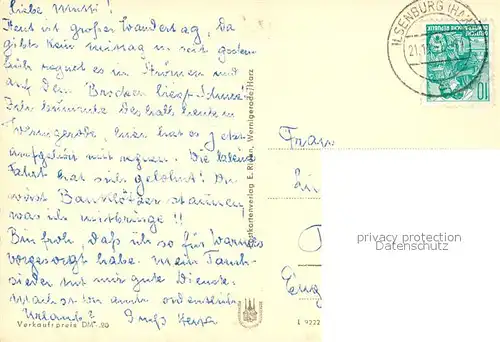 Liebe Mutti!
Heut ist großer Wandertag. Da
gibts kein Mittag u. seit gestern
früh regnet es in Strömen und
auf dem Brocken liegt Schnee.
Wernigerode, hier hat es jetzt
aufgehört mit regnen. Die
Fahrt hat sich gelohnt! Du
wirst Bauklötzer staunen
was ich mitbringe!!
Bin froh, daß ich so für warmes
vorgesorgt habe. Mein Tauch-
sieder tut mir gute Dienste.
Machst du auch ordentlich
Urlaub? Gruß
Verkaufspreis DM -.20
Postkartenverlag E. Wernigerode/Harz
L 9222
ILSENBURG (HARZ)
21.
DEUTSCHE DEMOKRATISCHE REPUBLIK
10
Frau
privacy protection
Datenschutz